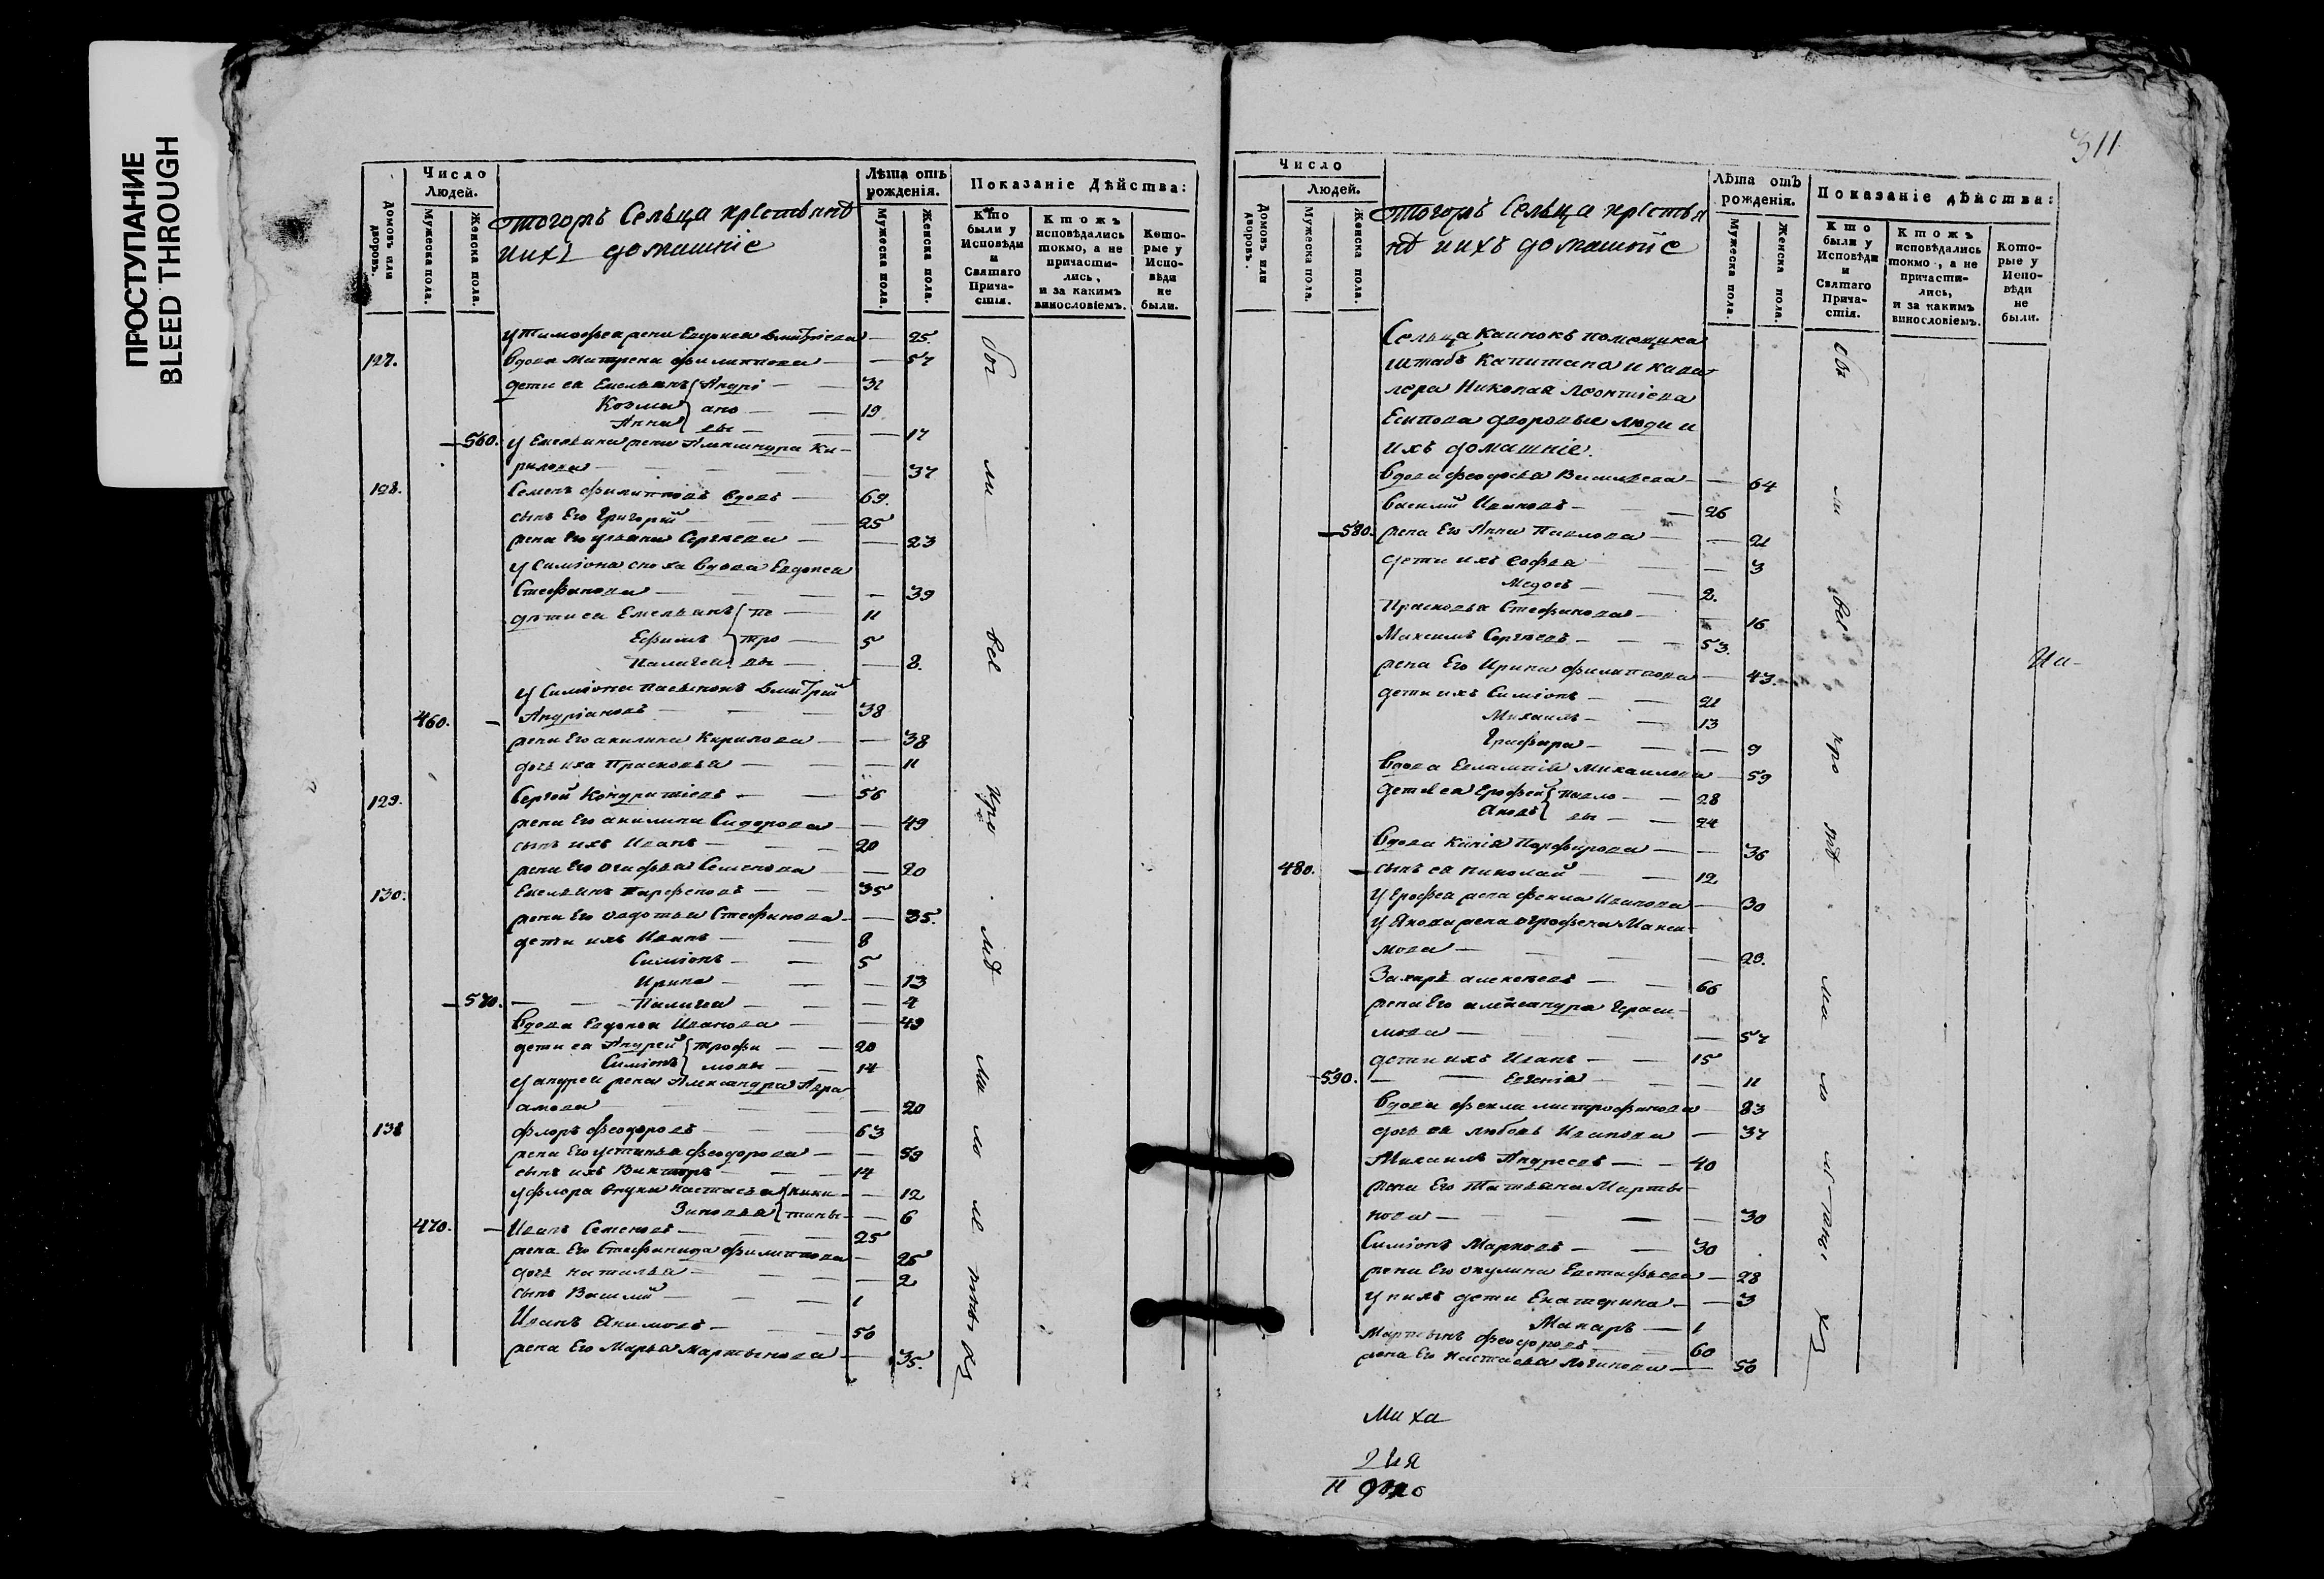 ПРОСТУПАНИЕ
BLEED THROUGH
Число
Людей.
Домовъ или дворовъ.
Мужеска пола.
Женска пола.
тогожъ Сельца крестьянъ
иихъ домашніе
Лѣта отъ рожденія.
Мужеска пола.
Женска пола.
Показаніе Дѣйства:
Кто были у Исповѣди и Святаго Прича- стія.
Ктожъ исповѣдались токмо, а не причасти- лись, и за какимъ винословіемъ.
Кото- рые у Испо- вѣди не были.
у Тимофеа жена Евдокеа Дмитріева — 25
127. вдова Матрена филиппова — 57
дети еа Емельянъ Андрі — 32
Козма ано — 19
Анна вы — 17
560. у Емельяна жена Александра Ки-
рилова — 37
128. Семенъ филипповъ вдовъ — 69.
сынъ Его Григорей — 25
жена Его ульяна Сергеева — 23
у Симіона сноха вдова Евдокеа
Стефанова — 39
дѣти еа Емельянъ пе — 11
Ефимъ тро — 5
Палагеа вы — 8.
у Симіона пасынокъ Дмитрій
460. Андріановъ — 38
жена Его акилина Кирилова — 38
дочь ихъ Прасковьа — 11
129. Сергей Кондратіевъ — 56
жена Его акилина Сидорова — 49
сынъ ихъ Иванъ — 20
жена Его агафьа Семенова — 20
130. Емельянъ Парфеновъ — 35
жена Его авдотьа Стефанова — 35.
дети ихъ Иванъ — 8
Симіонъ — 5
Ирина — 13
570. Палагеа — 4
вдова Евдокеа Иванова — 49
дети еа Андрей трофи — 20
Симіонъ мовы — 14
у андреа жена Александра Авра
амова — 20
138 флоръ феодоровъ — 63
жена Его устиньа феодорова — 59
сынъ ихъ Викторъ — 14
у флора внуки настасьа ники — 12
Зиновьа тины — 6
470. Иванъ Семеновъ — 25
жена Его Стефанида филиппова — 25
дочь натальа — 2
сынъ Василій — 1
Иванъ Екимовъ — 50
жена Его Марьа Мартынова — 35.
311
Число
Людей.
Домовъ или дворовъ.
Мужеска пола.
Женска пола.
тогожъ Сельца крестья
нъ иихъ домашніе
Лѣта отъ рожденія.
Мужеска пола.
Женска пола.
Показаніе дѣйства:
Кто были у Исповѣди и Святаго Прича- стія.
Ктожъ исповѣдались токмо, а не причасти- лись, и за какимъ винословіемъ.
Кото- рые у Испо- вѣди не были.
Сельца помещика
штабъ Капитана и кава
лера Николая Леонтіева
Есипова дворовые люди и
ихъ домашніе.
вдова феодосьа Васильева — 64
василій Ивановъ — 26
580. жена Его Анна Павлова — 21
дети ихъ софьа — 3
— 2.
Прасковьа Стефанова — 16
Максимъ Сергеевъ — 53.
жена Его Ирина филиппова — 43.
дети ихъ Симіонъ — 21
Михаилъ — 13
Глафира — 9
вдова Евлампіа михаилова — 59
дети еа Ерофей павло — 28
Яковъ вы — 24
вдова Порфирова — 36
480. сынъ еа николай — 12
у Ерофеа жена фекла Иванова — 30
у Якова жена агрофена Макси-
мова — 29.
Захаръ алексеевъ — 66
жена Его александра Гераси-
мова — 57
дети ихъ Иванъ — 15
590. Евгеніа — 11
вдова фекла митрофанова — 83
дочь еа любовь Иванова — 37
Михаилъ Андреевъ — 40
жена Его Татьана Марты-
нова — 30
Симіонъ Марковъ — 30
жена Его акулина Евстафьева — 28
у нихъ дети Екатерина — 3
Макаръ — 1
Мартынъ феодоровъ — 60
жена Его настасьа логинова — 50
Миха